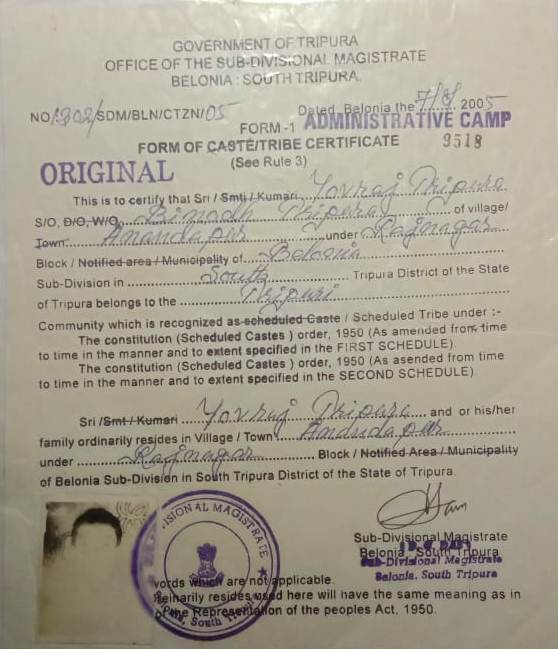 GOVERNMENT OF TRIPURA
OFFICE OF THE SUB-DIVISIONAL MAGISTRATE
BELONIA : SOUTH TRIPURA.
NO/1302/SDM/BLN/CTZN/05 Dated, Belonia the 7/9/ 2005
FORM -1 ADMINISTRATIVE CAMP
FORM OF CASTE/TRIBE CERTIFICATE 9518
(See Rule 3)
ORIGINAL
This is to certify that Sri / Smti / Kumari Yovraj Tripura
S/O, D/O, W/O Binodh Tripura of village/
Town Anandapur under Rajnagar
Block / Notified area / Municipality of Belonia
Sub-Division in South Tripura District of the State
of Tripura belongs to the Tripuri
Community which is recognized as scheduled Caste / Scheduled Tribe under :-
The constitution (Scheduled Castes ) order, 1950 (As amended from time
to time in the manner and to extent specified in the FIRST SCHEDULE).
The constitution (Scheduled Castes ) order, 1950 (As asended from time
to time in the manner and to extent specified in the SECOND SCHEDULE)
Sri / Smt / Kumari Yovraj Tripura and or his/her
family ordinarily resides in Village / Town Andudapur
under Rajnagar Block / Notified Area / Municipality
of Belonia Sub-Division in South Tripura District of the State of Tripura.
Sub-Divisional Magistrate
Belonia, South Tripura
Sub-Divisional Magistrate
Belonia, South Tripura
ISIONAL MAGISTRATE
South Tri
words which are not applicable.
inarily resides used here will have the same meaning as in
of the Representation of the peoples Act, 1950.